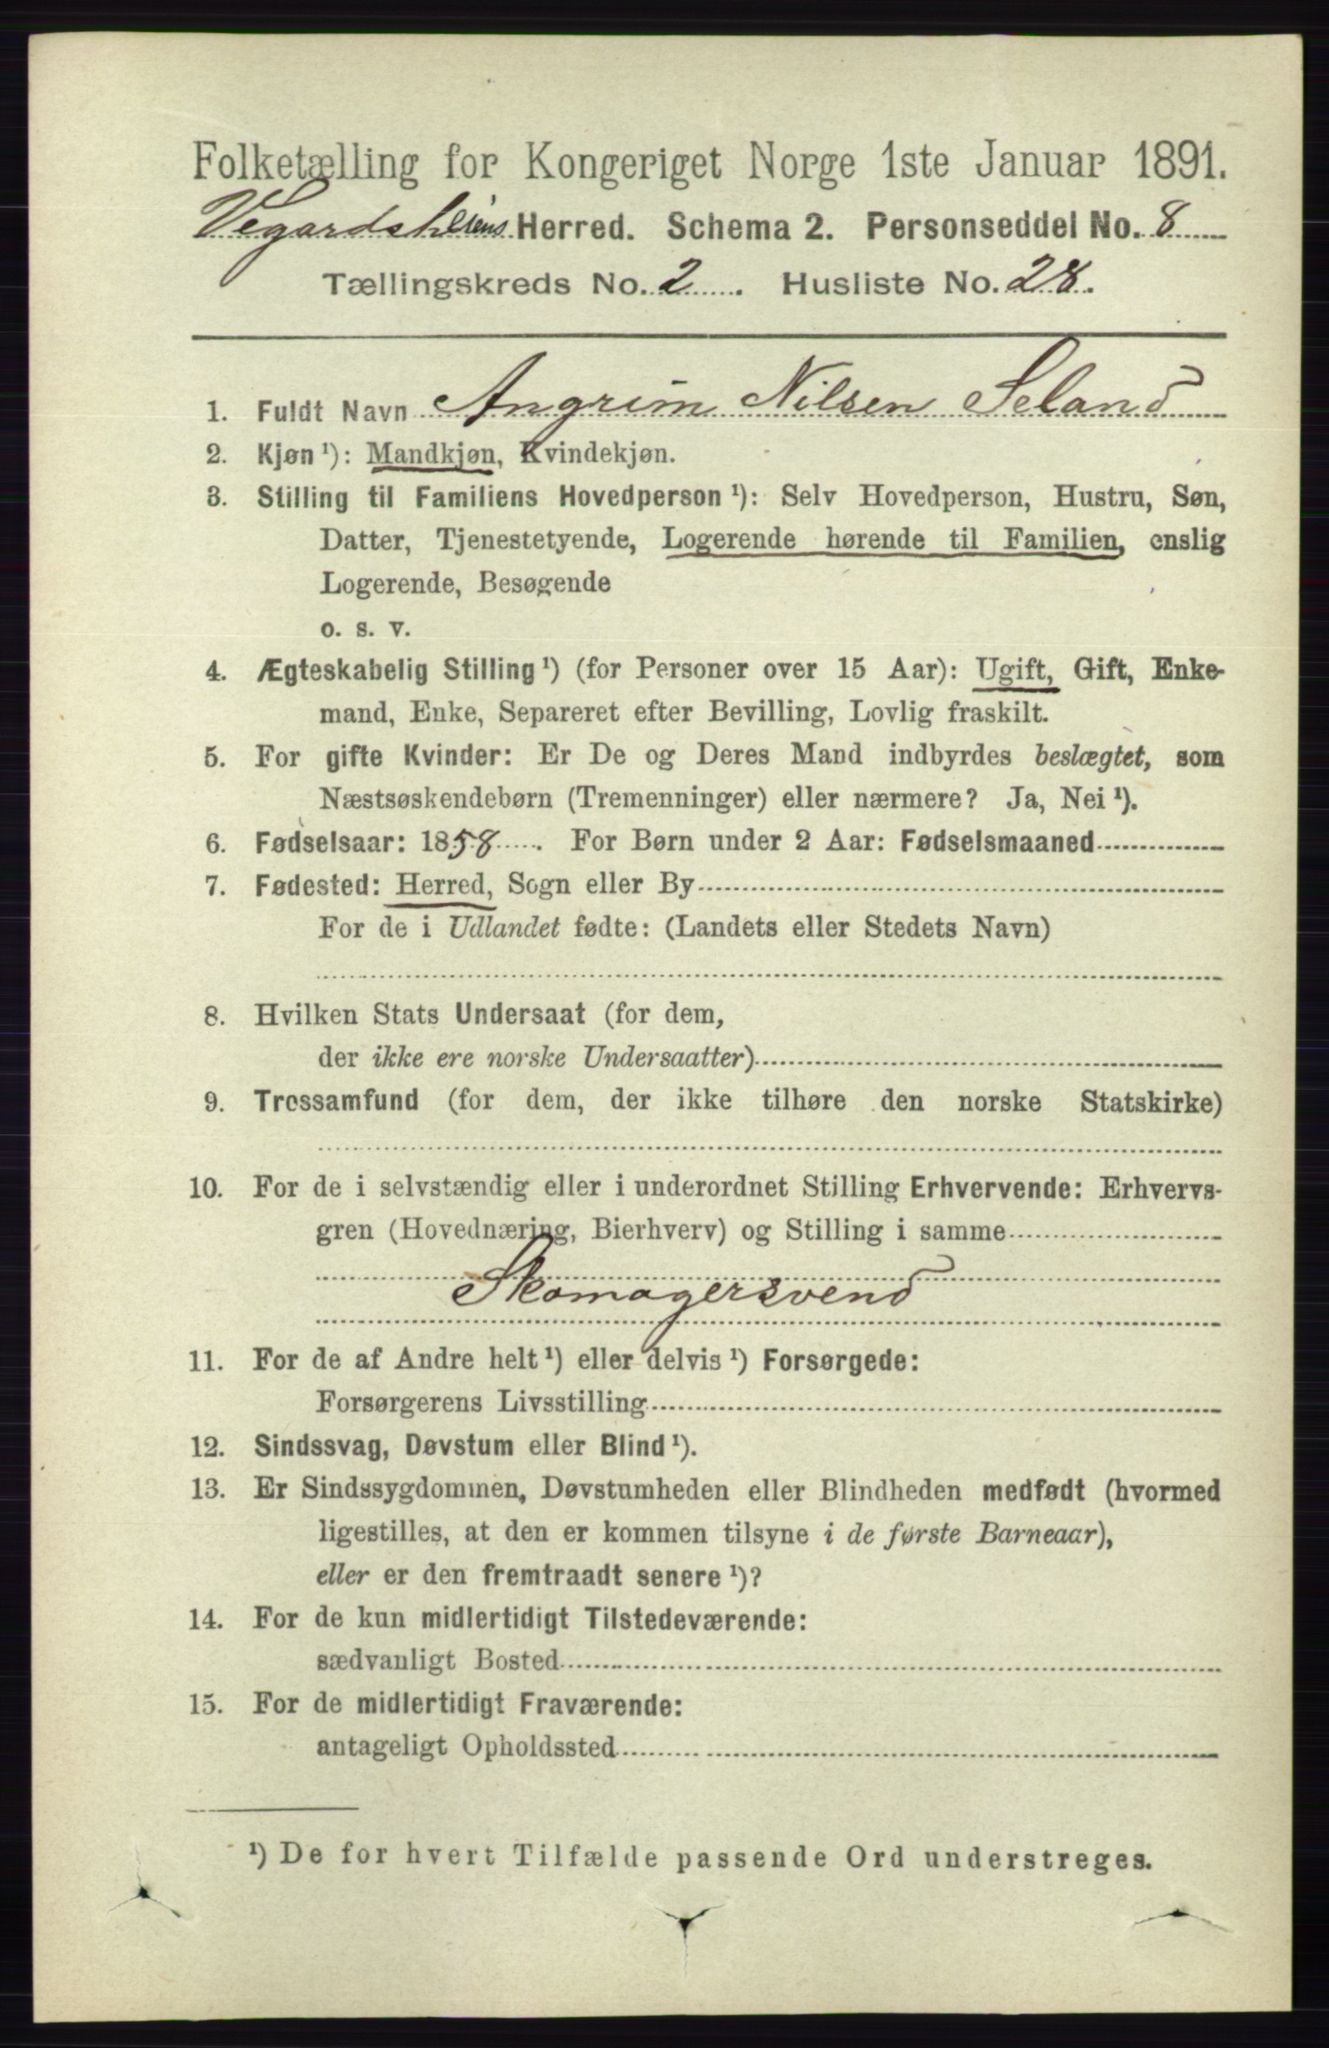 Folketælling for Kongeriget Norge 1ste Januar 1891.
Vegardsheiens Herred. Schema 2. Personseddel No. 8
Tællingskreds No. 2. Husliste No. 28.
1. Fuldt Navn Angrim Nilsen Seland
2. Kjøn ¹): Mandkjøn, Kvindekjøn.
3. Stilling til Familiens Hovedperson ¹): Selv Hovedperson, Hustru, Søn,
Datter, Tjenestetyende, Logerende hørende til Familien, enslig
Logerende, Besøgende
o. s. v.
4. Ægteskabelig Stilling ¹) (for Personer over 15 Aar): Ugift, Gift, Enke-
mand, Enke, Separeret efter Bevilling, Lovlig fraskilt.
5. For gifte Kvinder: Er De og Deres Mand indbyrdes beslægtet, som
Næstsøskendebørn (Tremenninger) eller nærmere? Ja, Nei ¹).
6. Fødselsaar: 1858. For Børn under 2 Aar: Fødselsmaaned
7. Fødested: Herred, Sogn eller By
For de i Udlandet fødte: (Landets eller Stedets Navn)
8. Hvilken Stats Undersaat (for dem,
der ikke ere norske Undersaatter)
9. Trossamfund (for dem, der ikke tilhøre den norske Statskirke)
10. For de i selvstændig eller i underordnet Stilling Erhvervende: Erhvervs-
gren (Hovednæring, Bierhverv) og Stilling i samme
Skomagersvend
11. For de af Andre helt ¹) eller delvis ¹) Forsørgede:
Forsørgerens Livsstilling
12. Sindssvag, Døvstum eller Blind ¹).
13. Er Sindssygdommen, Døvstumheden eller Blindheden medfødt (hvormed
ligestilles, at den er kommen tilsyne i de første Barneaar),
eller er den fremtraadt senere ¹)?
14. For de kun midlertidigt Tilstedeværende:
sædvanligt Bosted
15. For de midlertidigt Fraværende:
antageligt Opholdssted
¹) De for hvert Tilfælde passende Ord understreges.